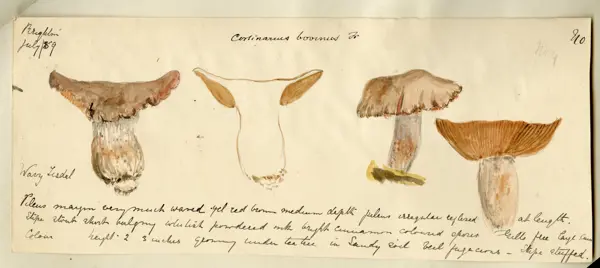 Brighton
July /89
Cortinarius bovinus Fr
210
Wavy Lirdel
Pileus margin very much waved yel red brown medium depth pileus irregular explored at length.
Stipe stout short bulging whitish powdered with bright cinnamon coloured spores Gills free large Cinn
Colour height 2 3 inches growing under teatree in Sandy Soil Veil fugacious – Stipe stuffed.